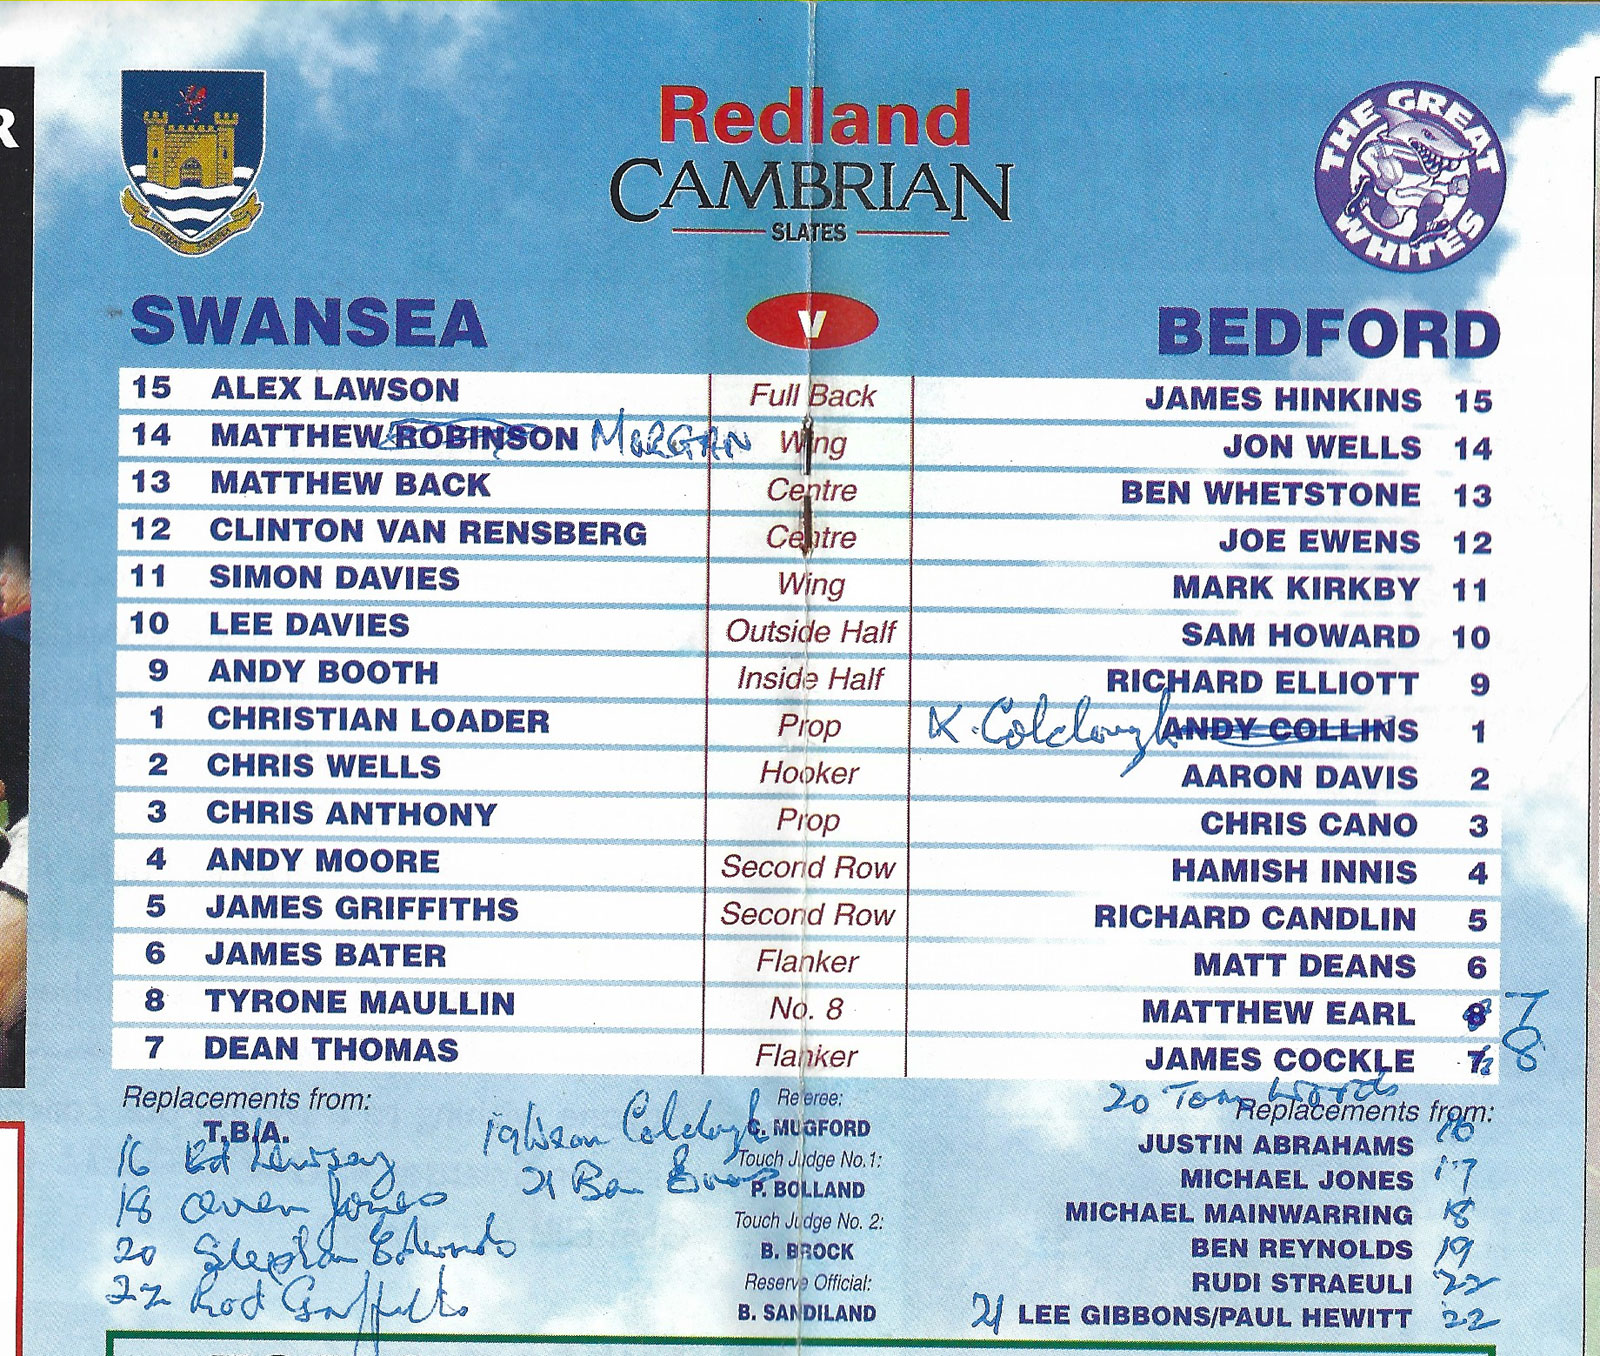 R
THE GREAT WHITES
Redland
CAMBRIAN
SLATES
SWANSEA v BEDFORD
15 ALEX LAWSON Full Back JAMES HINKINS 15
14 MATTHEW ROBINSON MORGAN Wing JON WELLS 14
13 MATTHEW BACK Centre BEN WHETSTONE 13
12 CLINTON VAN RENSBERG Centre JOE EWENS 12
11 SIMON DAVIES Wing MARK KIRKBY 11
10 LEE DAVIES Outside Half SAM HOWARD 10
9 ANDY BOOTH Inside Half RICHARD ELLIOTT 9
1 CHRISTIAN LOADER Prop K. Colclough ANDY COLLINS 1
2 CHRIS WELLS Hooker AARON DAVIS 2
3 CHRIS ANTHONY Prop CHRIS CANO 3
4 ANDY MOORE Second Row HAMISH INNIS 4
5 JAMES GRIFFITHS Second Row RICHARD CANDLIN 5
6 JAMES BATER Flanker MATT DEANS 6
8 TYRONE MAULLIN No. 8 MATTHEW EARL 8 7
7 DEAN THOMAS Flanker JAMES COCKLE 7 8
Replacements from:
T.B.A.
16 Ed Lewsey
18 Owen Jones
20 Stephen Edwards
22 Rod Griffiths
19 Colclough
21 Ben Evans
Referee:
C. MUGFORD
Touch Judge No.1:
P. BOLLAND
Touch Judge No. 2:
B. BROCK
Reserve Official:
B. SANDILAND
20 Tom Woods
Replacements from:
JUSTIN ABRAHAMS 16
MICHAEL JONES 17
MICHAEL MAINWARRING 18
BEN REYNOLDS 19
RUDI STRAEULI 22
21 LEE GIBBONS/PAUL HEWITT 22